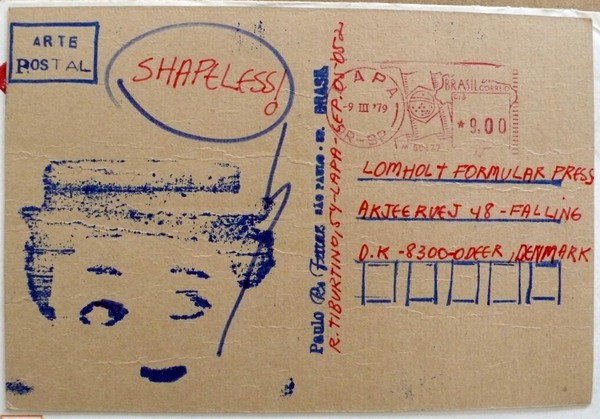 ARTE
POSTAL
SHAPELESS!
Paulo R. SÃO PAULO - SP. BRASIL
R. TIBURTINO, 54-LAPA-SEP. 05.052
LAPA
-9 III '79
BRASIL CORREIO
* 9,00
LOMHOLT FORMULAR PRESS
AKJEERVEJ 48 - FALLING
D.K - 8300-ODEER, DENMARK